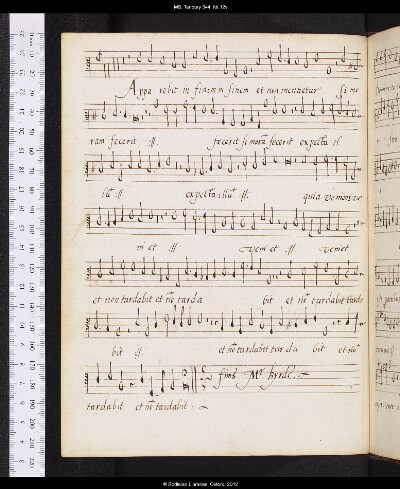 MS. Tenbury 344, fol. 12v
Appa rebit in finem finem et non mentietur si mo
ram fecerit :||: fecerit si morã fecerit expecta il
lũ :||: expecta illũ :||: quia veniens ve
ni et :||: veniet :||: veniet
et non tardabit et nõ tarda bit et nõ tardabit tarda
bit :||: et nõ tardabit tar da bit et nõ
tardabit et nõ tardabit
finis Mr Byrde
© Bodleian Libraries, Oxford, 2012